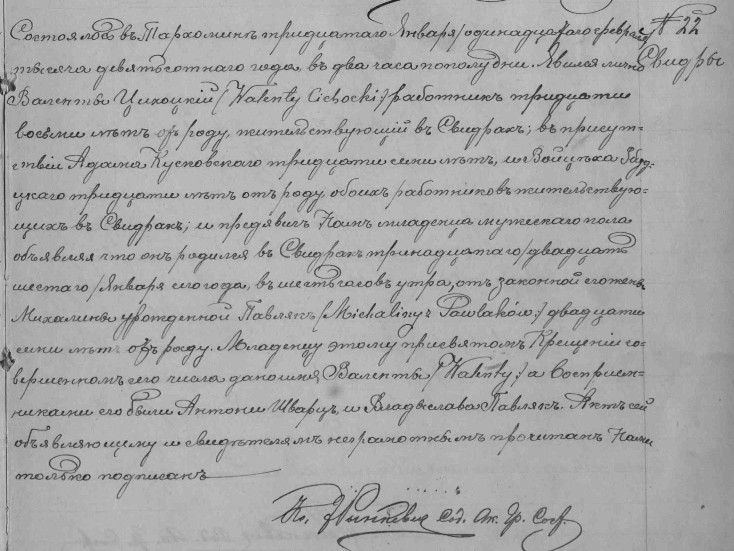 № 22
Свидры
Состоялось въ Пархоминѣ тридцатаго Января /одинадцатаго февраля
тысяча девятьсотнаго года, въ два часа пополудни. Явился лично
Валенты Цихоцкій /Walenty Cichocki/ работникъ тридцати
восьми лѣтъ отъ роду, жительствующій въ Свидрахъ; въ присут=
ствіи Адама Кусковскаго тридцати семи лѣтъ, и Войцѣха
цкаго тридцати лѣтъ отъ роду, обоихъ работниковъ жительствую=
щихъ въ Свидрахъ; и предявилъ Намъ младенца мужескаго пола
объявляя что онъ родился въ Свидрахъ тринадцатаго /двадцать
шестаго/ Января сего года, въ шесть часовъ утра, отъ законной его жены
Михалины урожденной Павлякъ /Michaliny z Pawlaków/ двадцати
семи лѣтъ отъ роду. Младенцу этому при святомъ Крещеніи со=
вершенномъ сего числа дано имя Валенты /Walenty/ а Воспріем=
никами его были Антони Шварцъ, и Владыслава Павлякъ. Актъ сей
объявляющему и свидѣтелямъ неграмотнымъ прочитанъ Нами
только подписанъ
Кс. Сод. Ак. Гр. Сост.